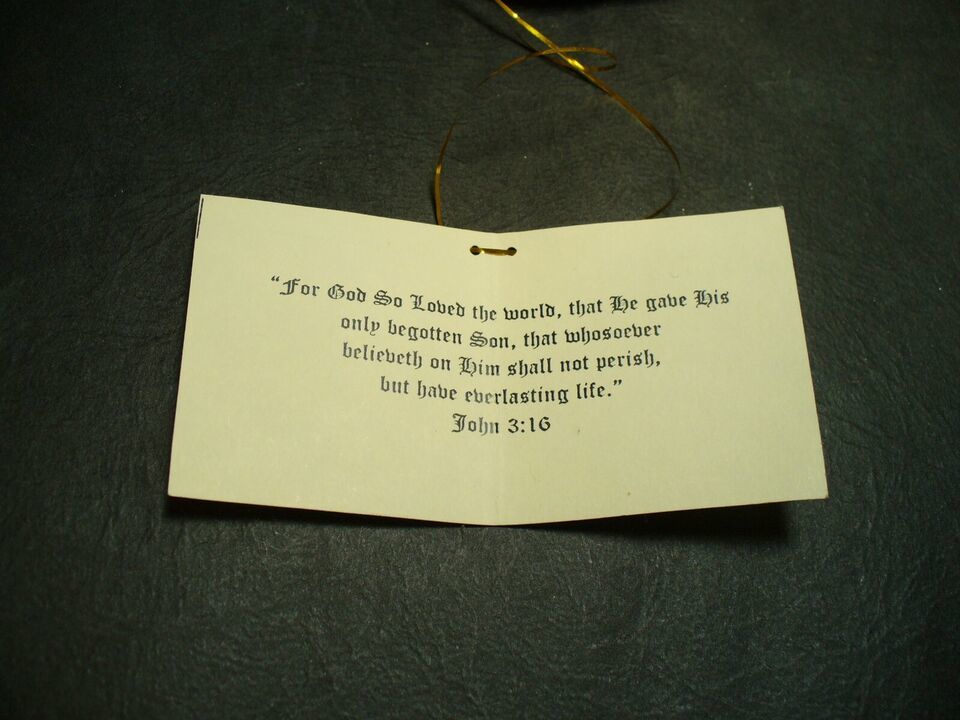 “For God So Loved the world, that He gave His
only begotten Son, that whosoever
believeth on Him shall not perish,
but have everlasting life.”
John 3:16